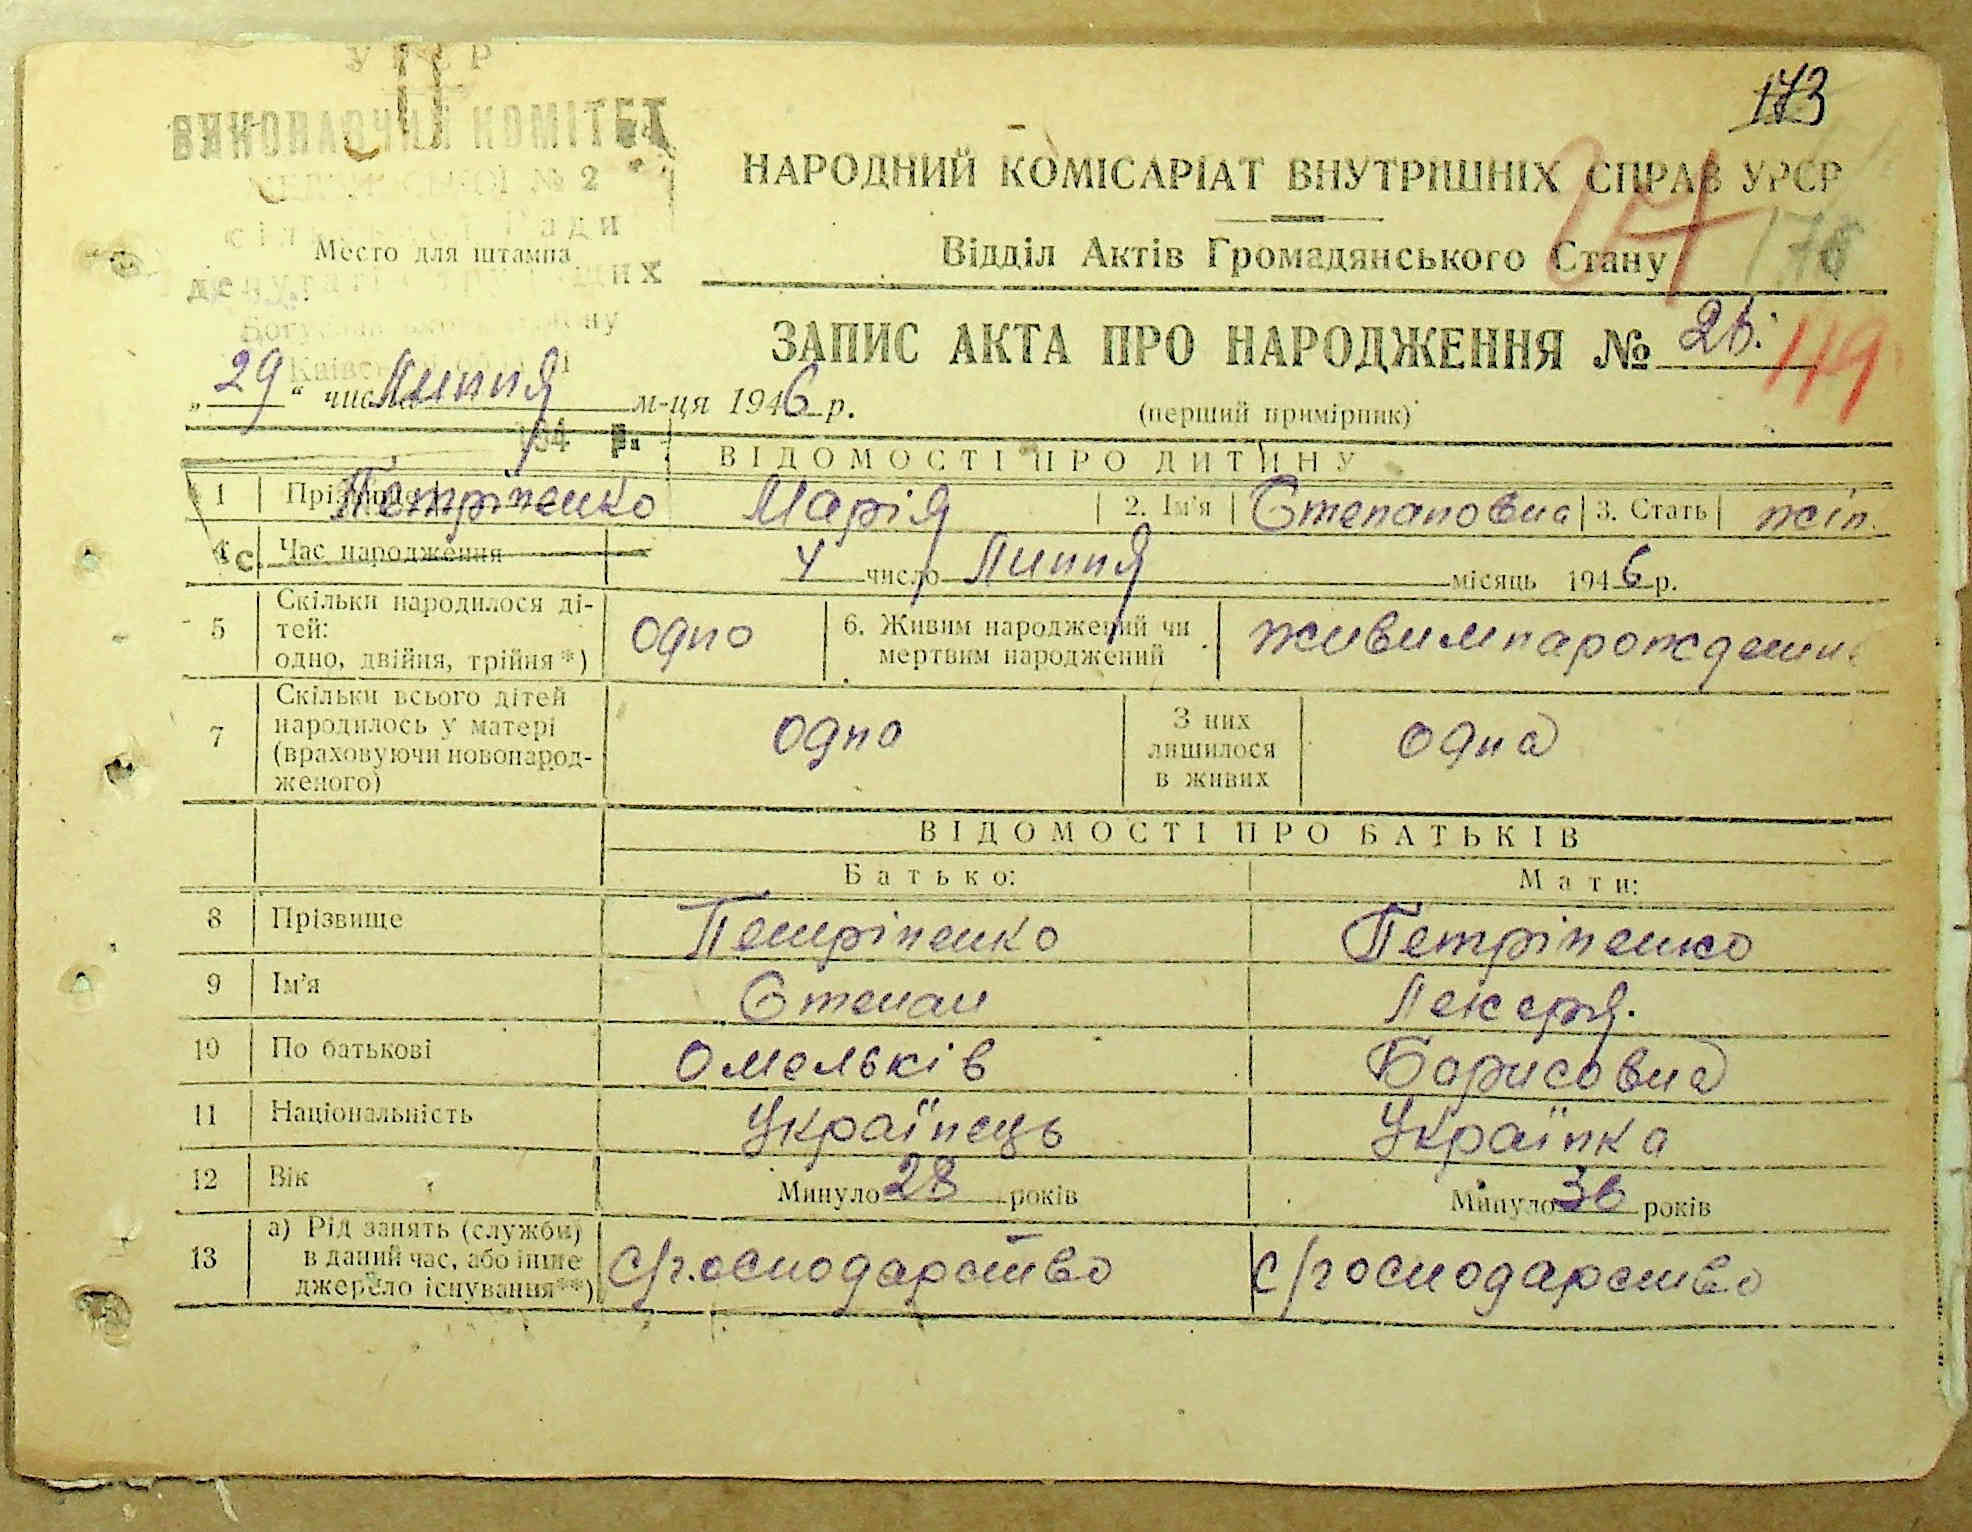 173
ВИКОНАВЧИЙ КОМІТЕТ
№ 2
НАРОДНИЙ КОМІСАРІАТ ВНУТРІШНІХ СПРАВ УРСР
Ради
Место для штампа
Відділ Актів Громадянського Стану
178
ЗАПИС АКТА ПРО НАРОДЖЕННЯ № 26.
149
„29“ числа Липня м-ця 1946 р.
(перший примірник)
194 р.
ВІДОМОСТІ ПРО ДИТИНУ
1 Прізвище Петріненко Марія 2. Ім'я Степановна 3. Стать жін.
4 Час народження 4 число Липня місяць 1946 р.
5 Скільки народилося ді-
тей:
одно, двійня, трійня*) одно 6. Живим народжений чи
мертвим народжений живимнарожденний
7 Скільки всього дітей
народилось у матері
(враховуючи новонарод-
женого) одно З них
лишилося
в живих одна
ВІДОМОСТІ ПРО БАТЬКІВ
Батько: Мати:
8 Прізвище Петріненко Петріненко
9 Ім'я Степан Лекєря.
10 По батькові Омельків Борисовна
11 Національність Українець Українка
12 Вік Минуло 28 років Минуло 36 років
13 а) Рід занять (служби)
в даний час, або інше
джерело існування**) с/господарство с/господарство